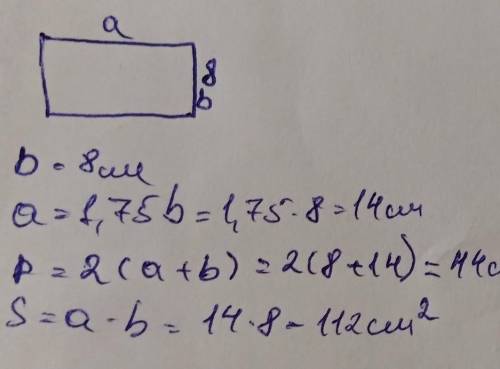 a
8
b
b = 8см
a = 1,75b = 1,75·8 = 14см
P = 2(a+b) = 2(8+14) = 44с
S = a·b = 14·8 = 112см²